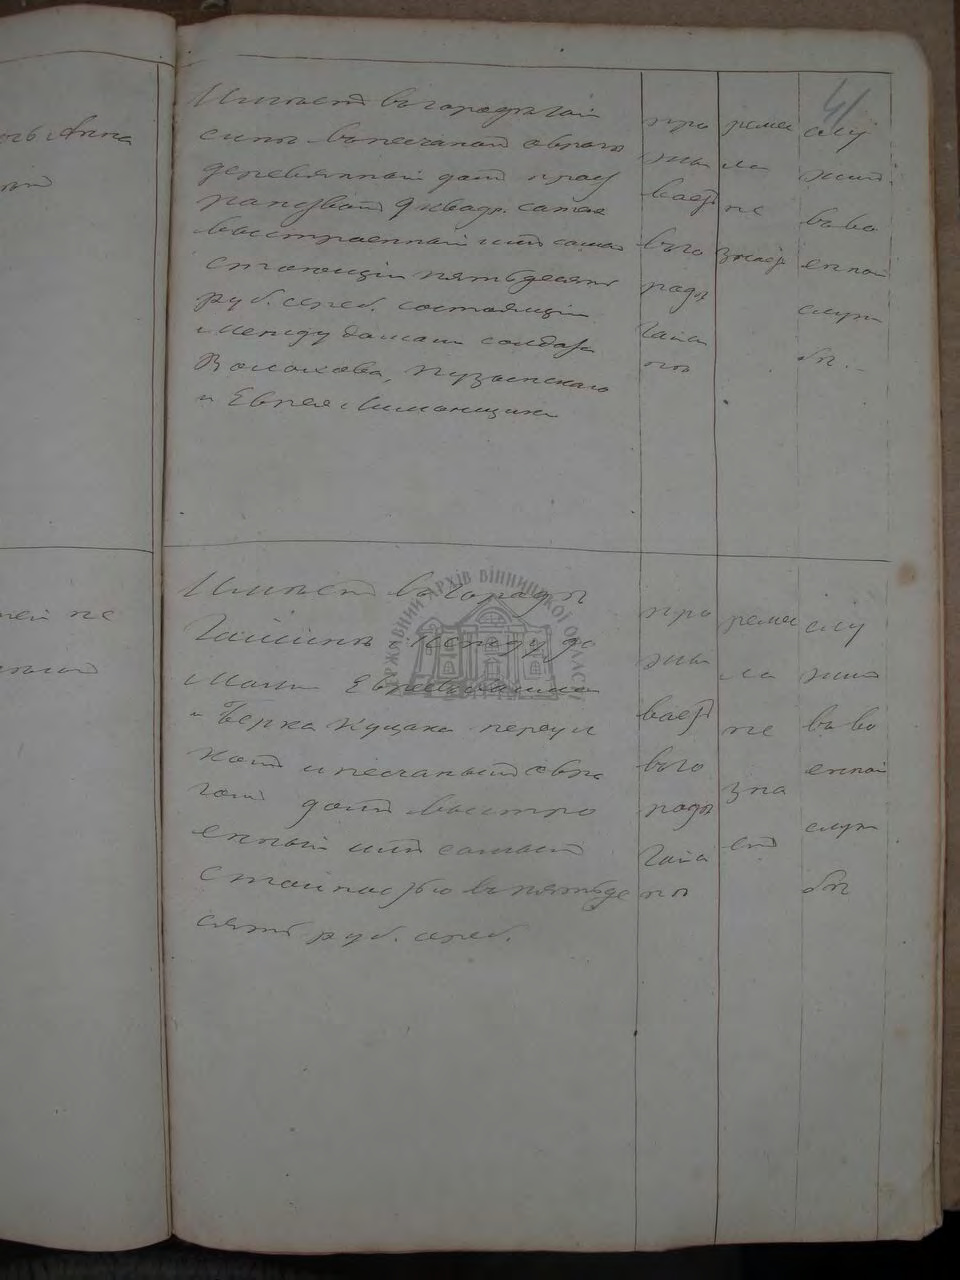 41
Имѣетъ въ городѣ Гай
синѣ въ песчаной оврагѣ
деревянный домъ
9 квадр. сажен
выстроенный имъ самимъ
стоющій пятьдесятъ
руб. сереб. состоящій
между домами солдата
Волохова,
и Еврея
про
жи
ваетъ
въ го
родѣ
Гайси
нѣ
ремес
ла
не
знаетъ
слу
житъ
въ во
енной
служ
бѣ.
Имѣетъ въ городѣ
Гайсинѣ между до
мами Еврея
и Берка Куцака переул
комъ и песчанымъ овра
гомъ домъ выстро
енный имъ самимъ
стоимостью въ пятьде
сятъ руб. сереб.
про
жи
ваетъ
въ го
родѣ
Гайси
нѣ
ремес
ла
не
зна
етъ
слу
житъ
въ во
енной
служ
бѣ
Анна
ДЕРЖАВНИЙ АРХІВ ВІННИЦЬКОЇ ОБЛАСТІ